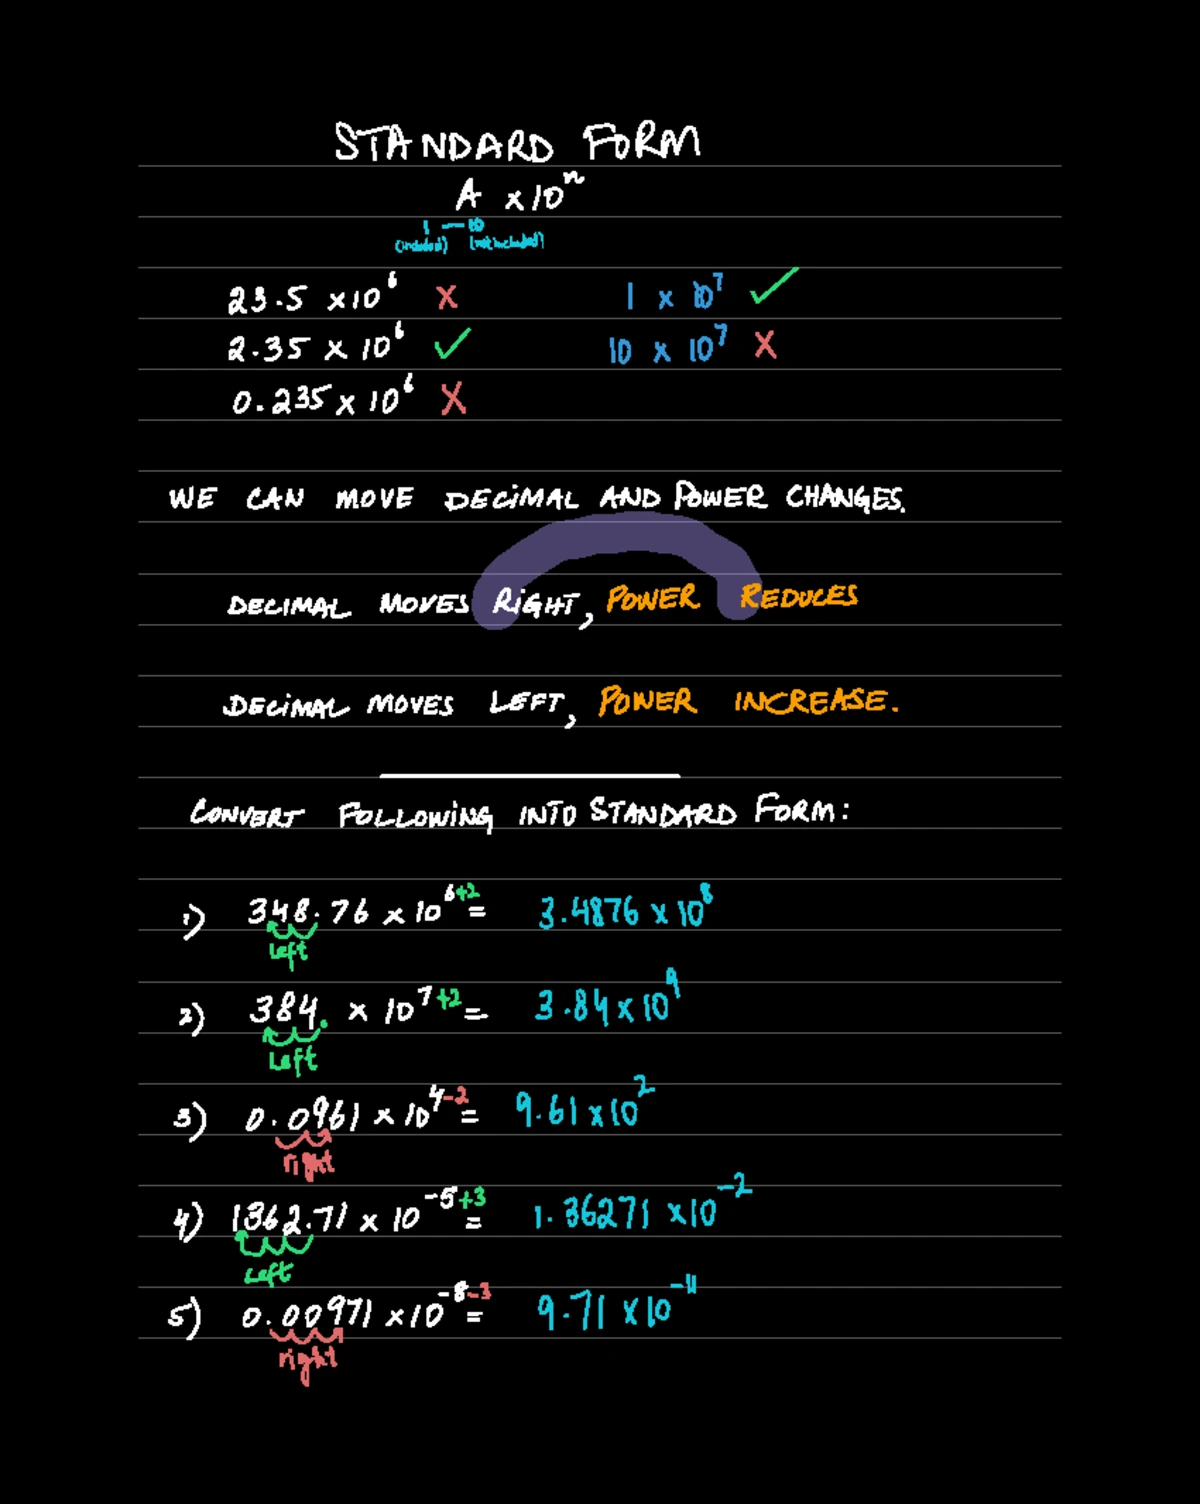 STANDARD FORM
A × 10ⁿ
1 — 10
(included) (not included)
23.5 × 10⁶ ✗ 1 × 10⁷ ✓
2.35 × 10⁶ ✓ 10 × 10⁷ ✗
0.235 × 10⁶ ✗
WE CAN MOVE DECIMAL AND POWER CHANGES.
DECIMAL MOVES RIGHT, POWER REDUCES
DECIMAL MOVES LEFT, POWER INCREASE.
CONVERT FOLLOWING INTO STANDARD FORM:
1) 348.76 × 10⁶⁺² = 3.4876 × 10⁸
Left
2) 384. × 10⁷⁺² = 3.84 × 10⁹
Left
3) 0.0961 × 10⁴⁻² = 9.61 × 10²
right
4) 1362.71 × 10⁻⁵⁺³ = 1.36271 × 10⁻²
Left
5) 0.00971 × 10⁻⁸⁻³ = 9.71 × 10⁻¹¹
right